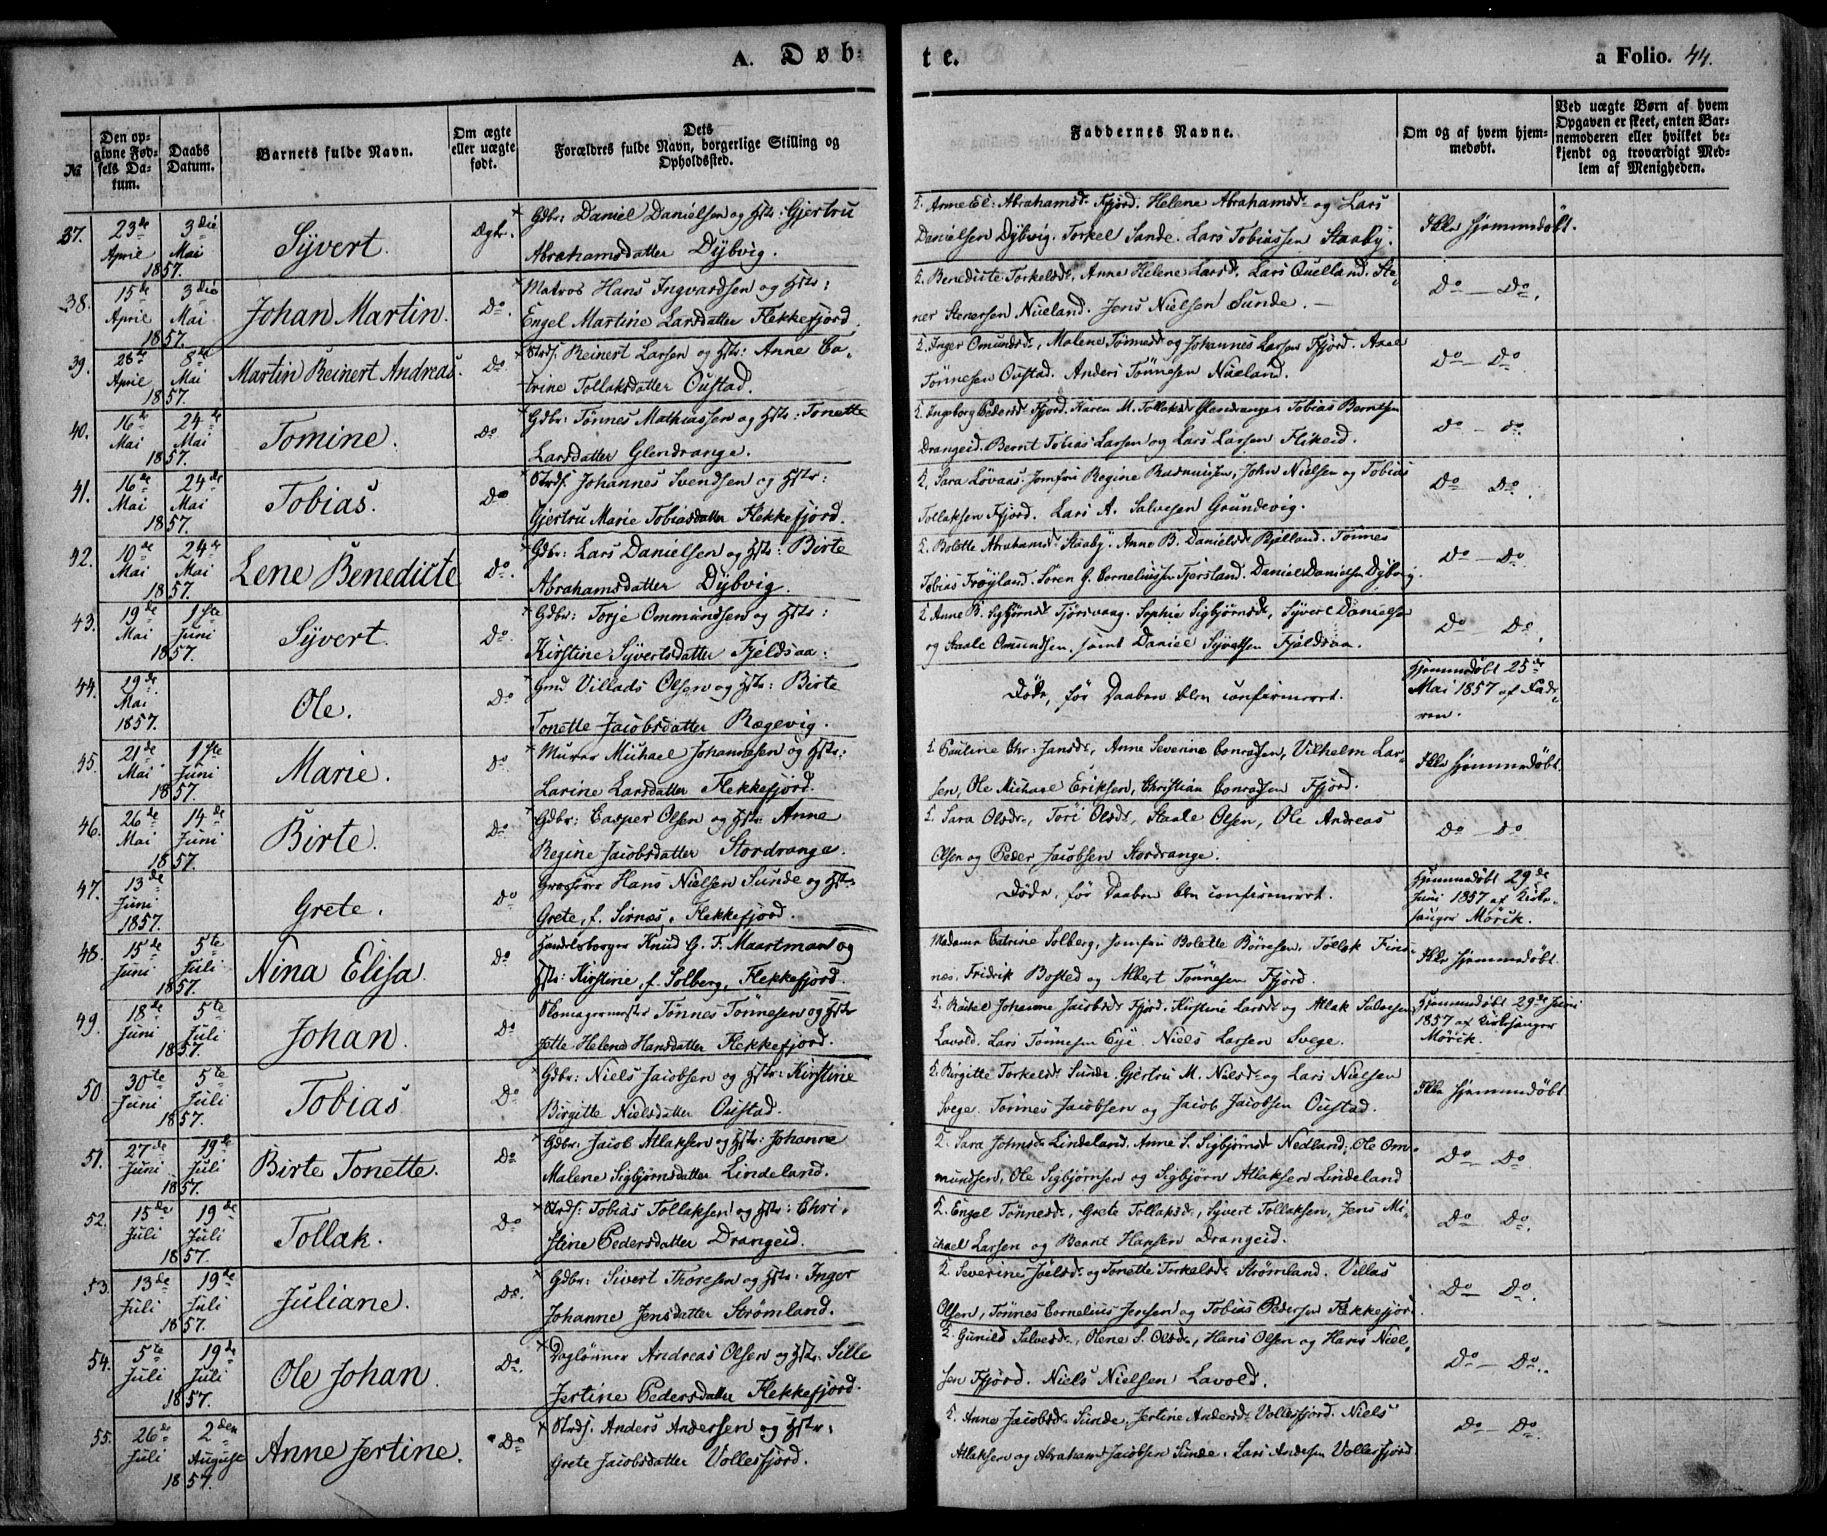 A. Døb-
te.
a Folio. 44.
No
Den op-
givne Fød-
sels Da-
tum.
Daabs
Datum.
Barnets fulde Navn.
Om ægte
eller uægte
født.
Dets
Forældres fulde Navn, borgerlige Stilling og
Opholdssted.
Faddernes Navne.
Om og af hvem hjem-
medøbt.
Ved uægte Børn af hvem
Opgaven er skeet, enten Bar-
nemoderen eller hvilket be-
kjendt og troværdigt Med-
lem af Menigheden.
37. 23de April 3die Mai 1857. Syvert. Ægte.
Gdbr: Daniel Danielsen og Hstr: Gjertru
Abrahamsdatter Dybvig.
Abrahamsdr Fjord. Helene Abrahamsdr og Lars
Danielsen Dybvig. Torkel Sande. Lars Tobiassen Staaby.
Ikke hjemmedøbt.
38. 15de April 3die Mai 1857. Johan Martin. Do.
Matros Hans Ingvardsen og Hstr:
Engel Martine Larsdatter Flekkefjord.
Benedicte Torkelsdr, Anne Helene Larsd. Lars Ouelland. Ste-
ner Stenersen Nueland. Jens Nielsen Sunde. —
Do — Do.
39. 28de April 8de Mai 1857. Martin Reinert Andreas. Do
Strdf. Reinert Larsen og Hstr: Anne Ca-
trine Tollaksdatter Oustad.
Inger Omundsdr, Malene Tønnesdr og Johannes Larsen Fjord. Axel
Tønnesen Oustad. Anders Tønnesen Nueland.
Do — Do
40. 16de Mai 24de Mai 1857. Tomine. Do
Gdbr: Tønnes Mathiassen og Hstr: Tonette
Larsdatter Glendrange.
Ingeborg Pedersdr Fjord. Karen M. Tollaksdr Glendrange. Tobias Berntsen
Drangeid. Bernt Tobias Larsen og Lars Larsen Flikeid.
Do — do
41. 16de Mai 24de Mai 1857. Tobias. Do
Strdf. Johannes Svendsen og Hstr:
Gjertru Marie Tobiasdatter Flekkefjord.
Sara Løvaas, Jomfru Regine Rasmussen, John Nielsen og Tobias
Tollaksen Fjord. Lars A. Salvesen Grundevig.
Do — Do.
42. 10de Mai 24de Mai 1857. Lene Benedicte Do.
Gdbr: Lars Danielsen og Hstr: Birte
Abrahamsdatter Dybvig.
Bolette Abrahamsdr Staaby. Anne B. Danielsdr Bjelland. Tønnes
Tobias Frøyland. Søren G. Corneliussen Fjersland. Daniel Danielsen Dybvig.
Do — Do
43. 19de Mai 1ste Juni 1857. Syvert. Do.
Gdbr: Torje Ommundsen og Hstr:
Kirstine Syvertsdatter Fjeldsaa.
Anne B. Sigbjørnsdr Fjørsvaag. Sophie Sigbjørnsdr, Syvert Danielsen
og Staale Omundsen, samt Daniel Syvertsen Fjeldsaa.
Do — Do.
44. 29de Mai 1857. Ole. Do
Villads Olsen og Hstr: Birte
Tonette Jacobsdatter Rægevig.
Døde, før Daaben blev confirmeret.
Hjemmedøbt 25de
Mai 1857 af Fad-
ren.
45. 21de Mai 1ste Juni 1857. Marie. Do
Murer Michael Johannesen og Hstr:
Larine Larsdatter Flekkefjord.
Pauline Chr. Jansdr, Anne Severine Conradsen, Vilhelm Lar-
sen, Ole Michael Eriksen, Christian Conradsen Fjord.
Ikke hjemmedøbt.
46. 26de Mai 14de Juni 1857. Birte. Do
Gdbr: Casper Olsen og Hstr: Anne
Regine Jacobsdatter Stordrange.
Sara Olsdr, Tori Olsdr, Staale Olsen, Ole Andreas
Olsen og Peder Jacobsen Stordrange.
Do — Do
47. 13de Juni 1857. Grete. Do
Hans Nielsen Sunde og Hstr:
Grete, f. Sirnæs, Flekkefjord.
Døde, før Daaben blev confirmeret.
Hjemmedøbt 29de
Juni 1857 af Kirke-
sanger Mørik.
48. 15de Juni 5te Juli 1857. Nina Elisa. Do
Handelsborger Knud G. F. Maartman og
Hstr: Kirstine, f. Solberg, Flekkefjord.
Madame Catrine Solberg, Jomfru Bolette Børresen, Tollak Fin-
nes. Fridrik Bosted og Albert Tønnesen Fjord.
Ikke hjemmedøbt.
49. 18de Juni 5te Juli 1857. Johan. Do
Blomagermester Tønnes Tønnesen og Hstr
Jette Helene Hansdatter Flekkefjord.
Rakel Johanne Jacobsdr Fjord. Kirstine Larsdr og Atlak Salvesen
Lavold. Lars Tønnesen Eye. Niels Larsen Svege.
Hjemmedøbt 29de Juni
1857 af Kirkesanger
Mørik.
50 30te Juni 5te Juli 1857. Tobias Do
Gdbr: Niels Jacobsen og Hstr: Kirstine
Birgitte Nielsdatter Oustad.
Birgitte Torkelsdr Sunde. Gjertru M. Nielsdr og Lars Nielsen
Svege. Tønnes Jacobsen og Jacob Jacobsen Oustad.
Ikke hjemmedøbt
51. 27de Juni 19de Juli 1857. Birte Tonette. Do
Gdbr: Jacob Atlaksen og Hstr: Johanne
Malene Sigbjørnsdatter Lindeland.
Sara Johnsdr Lindeland. Anne S. Sigbjørnsdr Nedland. Ole Om-
mundsen, Ole Sigbjørnsen og Sigbjørn Atlaksen Lindeland
Do — Do.
52. 15de Juli 19de Juli 1857. Tollak. Do
Strdf. Tobias Tollaksen og Hstr: Chri-
stine Pedersdatter Drangeid.
Engel Tønnesdr, Grete Tollaksdr, Syvert Tollaksen, Jens Mi-
chael Larsen og Bernt Hansen Drangeid.
Do — Do.
53. 13de Juli 19de Juli 1857. Juliane. Do.
Gdbr: Sivert Thoresen og Hstr: Inger
Johanne Jensdatter Strømland.
Severine Joelsdr og Tonette Torkelsdr Strømland. Villas
Olsen, Tønnes Cornelius Jensen og Tobias Pedersen Flekkefjord.
Do — Do.
54. 5te Juli 19de Juli 1857. Ole Johan. Do.
Daglønner Andreas Olsen og Hstr: Sille
Jertine Pedersdatter Flekkefjord.
Gunild Salvesdr, Olene S. Olsdr, Hans Olsen og Hans Niel-
sen Fjord. Niels Nielsen Lavold.
Do — Do.
55. 26de Juli 2den August 1857. Anne Jertine. Do
Strdf. Anders Andersen og Hstr:
Grete Jacobsdatter Vollesfjord.
Anne Jacobsdr Sunde. Jertine Andersdr Vollesfjord. Niels
Atlaksen og Abraham Jacobsen Sunde. Lars Andersen Vollesfjord
Do — Do.